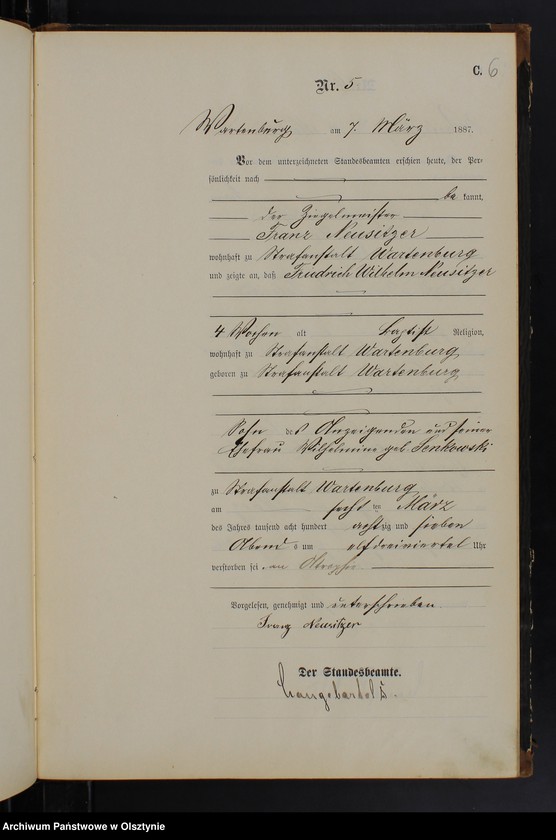 C. 6
Nr. 5
Wartenburg am 7. März 1887.
Vor dem unterzeichneten Standesbeamten erschien heute, der Per-
sönlichkeit nach
be kannt,
der Ziegelmeister
Franz Neusitzer
wohnhaft zu Strafanstalt Wartenburg
und zeigte an, daß Friedrich Wilhelm Neusitzer
4 Wochen alt baptist Religion,
wohnhaft zu Strafanstalt Wartenburg
geboren zu Strafanstalt Wartenburg
Sohn des Anzeigenden und seiner
Ehefrau Wilhelmine geb Senkowski
zu Strafanstalt Wartenburg
am sechs ten März
des Jahres tausend acht hundert achtzig und sieben
Abends um elf dreiviertel Uhr
verstorben sei an Atrophie
Vorgelesen, genehmigt und unterschrieben
Franz Neusitzer
Der Standesbeamte.
Archiwum Państwowe w Olsztynie